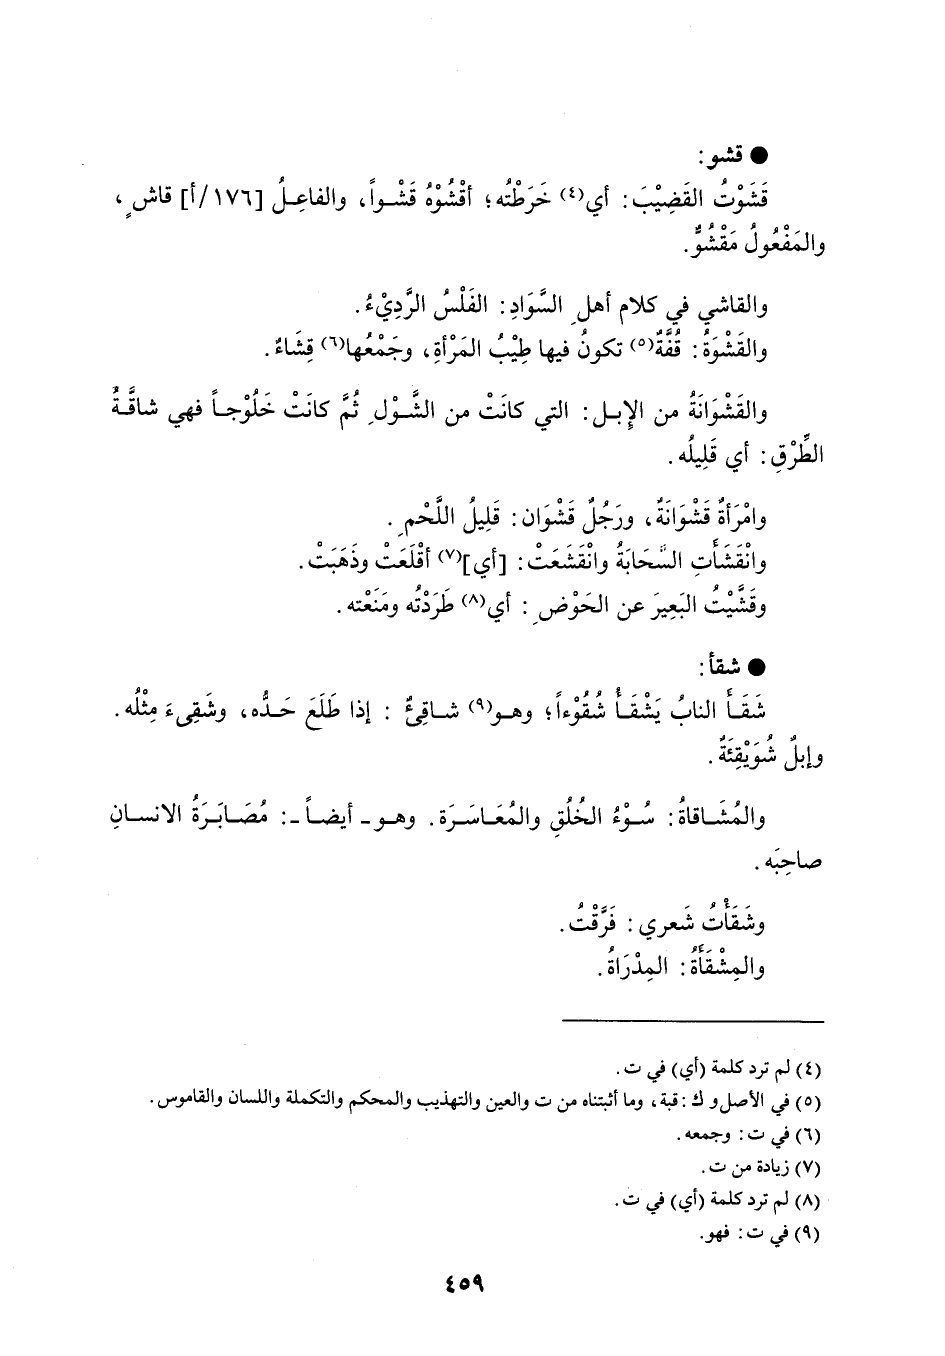 ● قشو:
قَشَوْتُ القَضِيْبَ: أي(٤) خَرَطْتُه؛ أقْشُوْهُ قَشْواً، والفاعِلُ [١٧٦/أ] قاشٍ،
والمَفْعُولُ مَقْشُوٌّ.
والقاشي في كلام أهلِ السَّوَادِ: الفَلْسُ الرَّدِيْءُ.
والقَشْوَةُ: قُفَّةٌ(٥) تكونُ فيها طِيْبُ المَرْأةِ، وجَمْعُها(٦) قِشَاءٌ.
والقَشْوَانَةُ من الإِبل: التي كانَتْ من الشَّوْلِ ثُمَّ كانَتْ خَلُوْجاً فهي شاقَّةُ
الطِّرْقِ: أي قَلِيلُه.
وامْرَأةٌ قَشْوَانَةٌ، ورَجُلٌ قَشْوَان: قَلِيلُ اللَّحْمِ.
وانْقَشَأَتِ السَّحَابَةُ وانْقَشَعَتْ: [أي](٧) أقْلَعَتْ وذَهَبَتْ.
وقَشَّيْتُ البَعِيرَ عن الحَوْضِ: أي(٨) طَرَدْتُه ومَنَعْته.
● شقأ:
شَقَأَ النابُ يَشْقَأُ شُقُوْءاً؛ وهو(٩) شاقِئٌ: إذا طَلَعَ حَدُّه، وشَقِىءَ مِثْلُه.
وإبلٌ شُوَيْقِئَةٌ.
والمُشَاقاةُ: سُوْءُ الخُلُقِ والمُعَاسَرَة. وهو- أيضاً-: مُصَابَرَةُ الانسانِ
صاحِبَه.
وشَقَأْتُ شَعري: فَرَّقْتُ.
والمِشْقَأَةُ: المِدْرَاةُ.
(٤) لم ترد كلمة (أي) في ت.
(٥) في الأصل و ك: قبة، وما أثبتناه من ت والعين والتهذيب والمحكم والتكملة واللسان والقاموس.
(٦) في ت: وجمعه.
(٧) زيادة من ت.
(٨) لم ترد كلمة (أي) في ت.
(٩) في ت: فهو.
٤٥٩